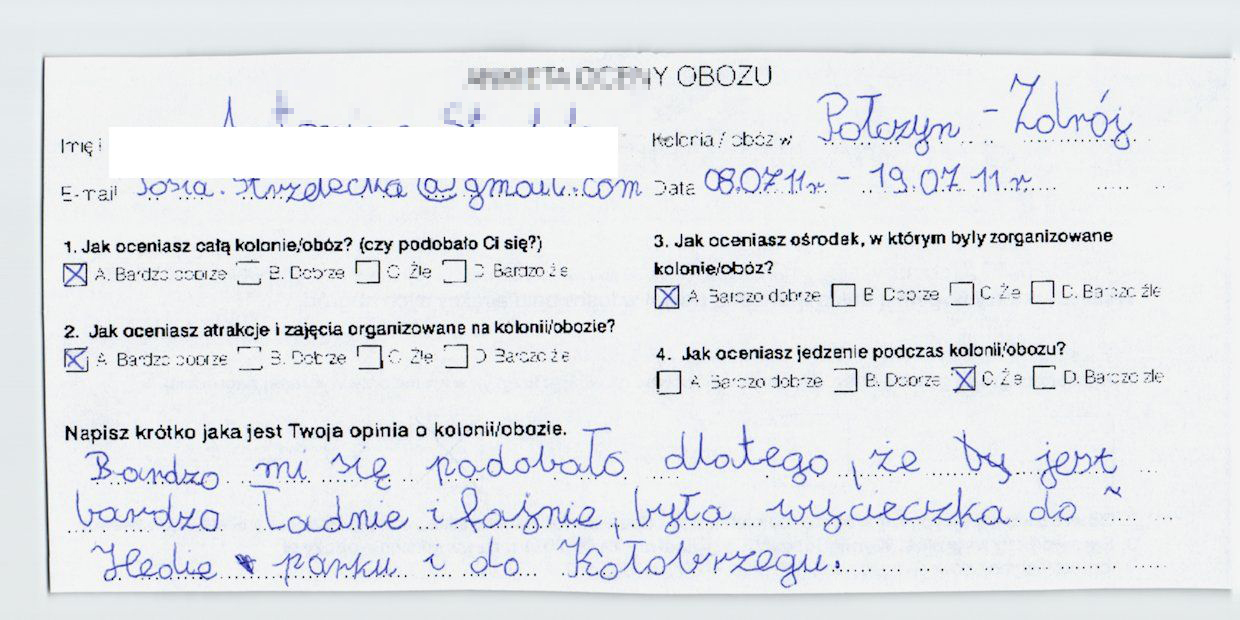 ANKIETA OCENY OBOZU
Imię i
Kolonia / obóz w Połczyn - Zdrój
E-mail .strzelecka@gmail.com Data 08.07 11r - 19.07 11 r
1. Jak oceniasz całą kolonie/obóz? (czy podobało Ci się?)
A. Bardzo dobrze B. Dobrze C. Źle D. Bardzo źle
2. Jak oceniasz atrakcje i zajęcia organizowane na kolonii/obozie?
A. Bardzo dobrze B. Dobrze C. Źle D. Bardzo źle
3. Jak oceniasz ośrodek, w którym były zorganizowane
kolonie/obóz?
A. Bardzo dobrze B. Dobrze C. Źle D. Bardzo źle
4. Jak oceniasz jedzenie podczas kolonii/obozu?
A. Bardzo dobrze B. Dobrze C. Źle D. Bardzo źle
Napisz krótko jaka jest Twoja opinia o kolonii/obozie.
Bardzo mi się podobało dlatego, że jest
bardzo Ładnie i fajnie, była wycieczka do
parku i do Kołobrzegu.